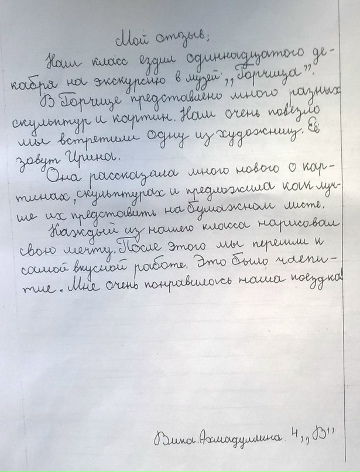 Мой отзыв.
Наш класс ездил одиннадцатого де-
кабря на экскурсию в музей ,,Горчица".
В Горчице представлено много разных
скульптур и картин. Нам очень повезло
мы встретили одну из художниц. Её
зовут Ирина.
Она рассказала много нового о кар-
тинах, скульптурах и предложила нам луч-
ше их представить на бумажном листе.
Каждый из нашего класса нарисовал
свою мечту. После этого мы перешли к
самой вкусной работе. Это было чаепи-
тие. Мне очень понравилось наша поездка!
Вика Ахмадуллина 4 ,,В"